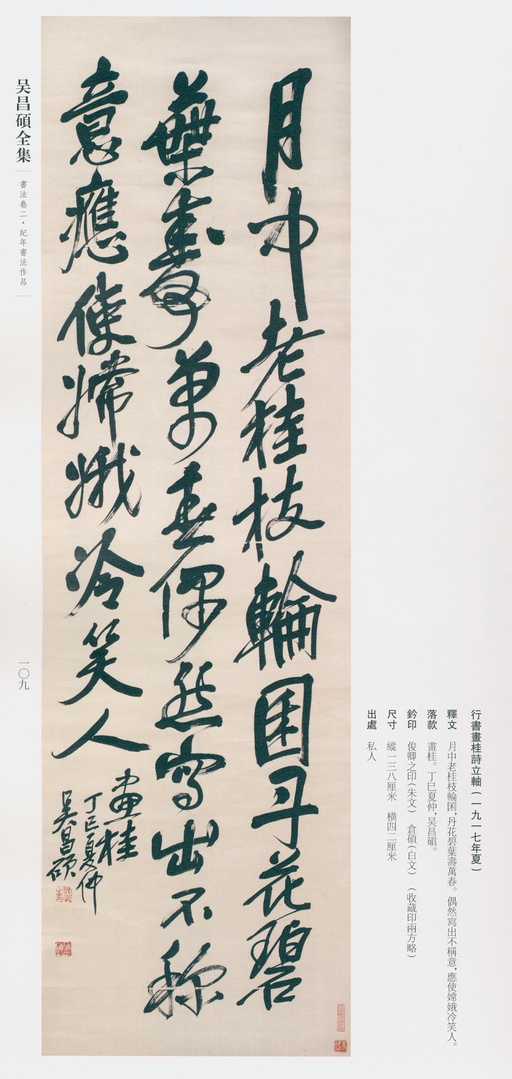 行書畫桂詩立軸(一九一七年夏)
釋文 月中老桂枝輪囷,丹花碧葉壽萬春。偶然寫出不稱意,應使嫦娥冷笑人。
落款 畫桂。丁巳夏仲,吴昌碩。
鈐印 俊卿之印(朱文) 倉碩(白文) (收藏印兩方略)
尺寸 縱一三八厘米 橫四二厘米
出處 私人
月中老桂枝輪囷丹花碧
葉壽萬春偶然寫出不稱
意應使嫦娥冷笑人
畫桂
丁巳夏仲
吴昌碩
吴昌碩全集
書法卷二·紀年書法作品
一〇九